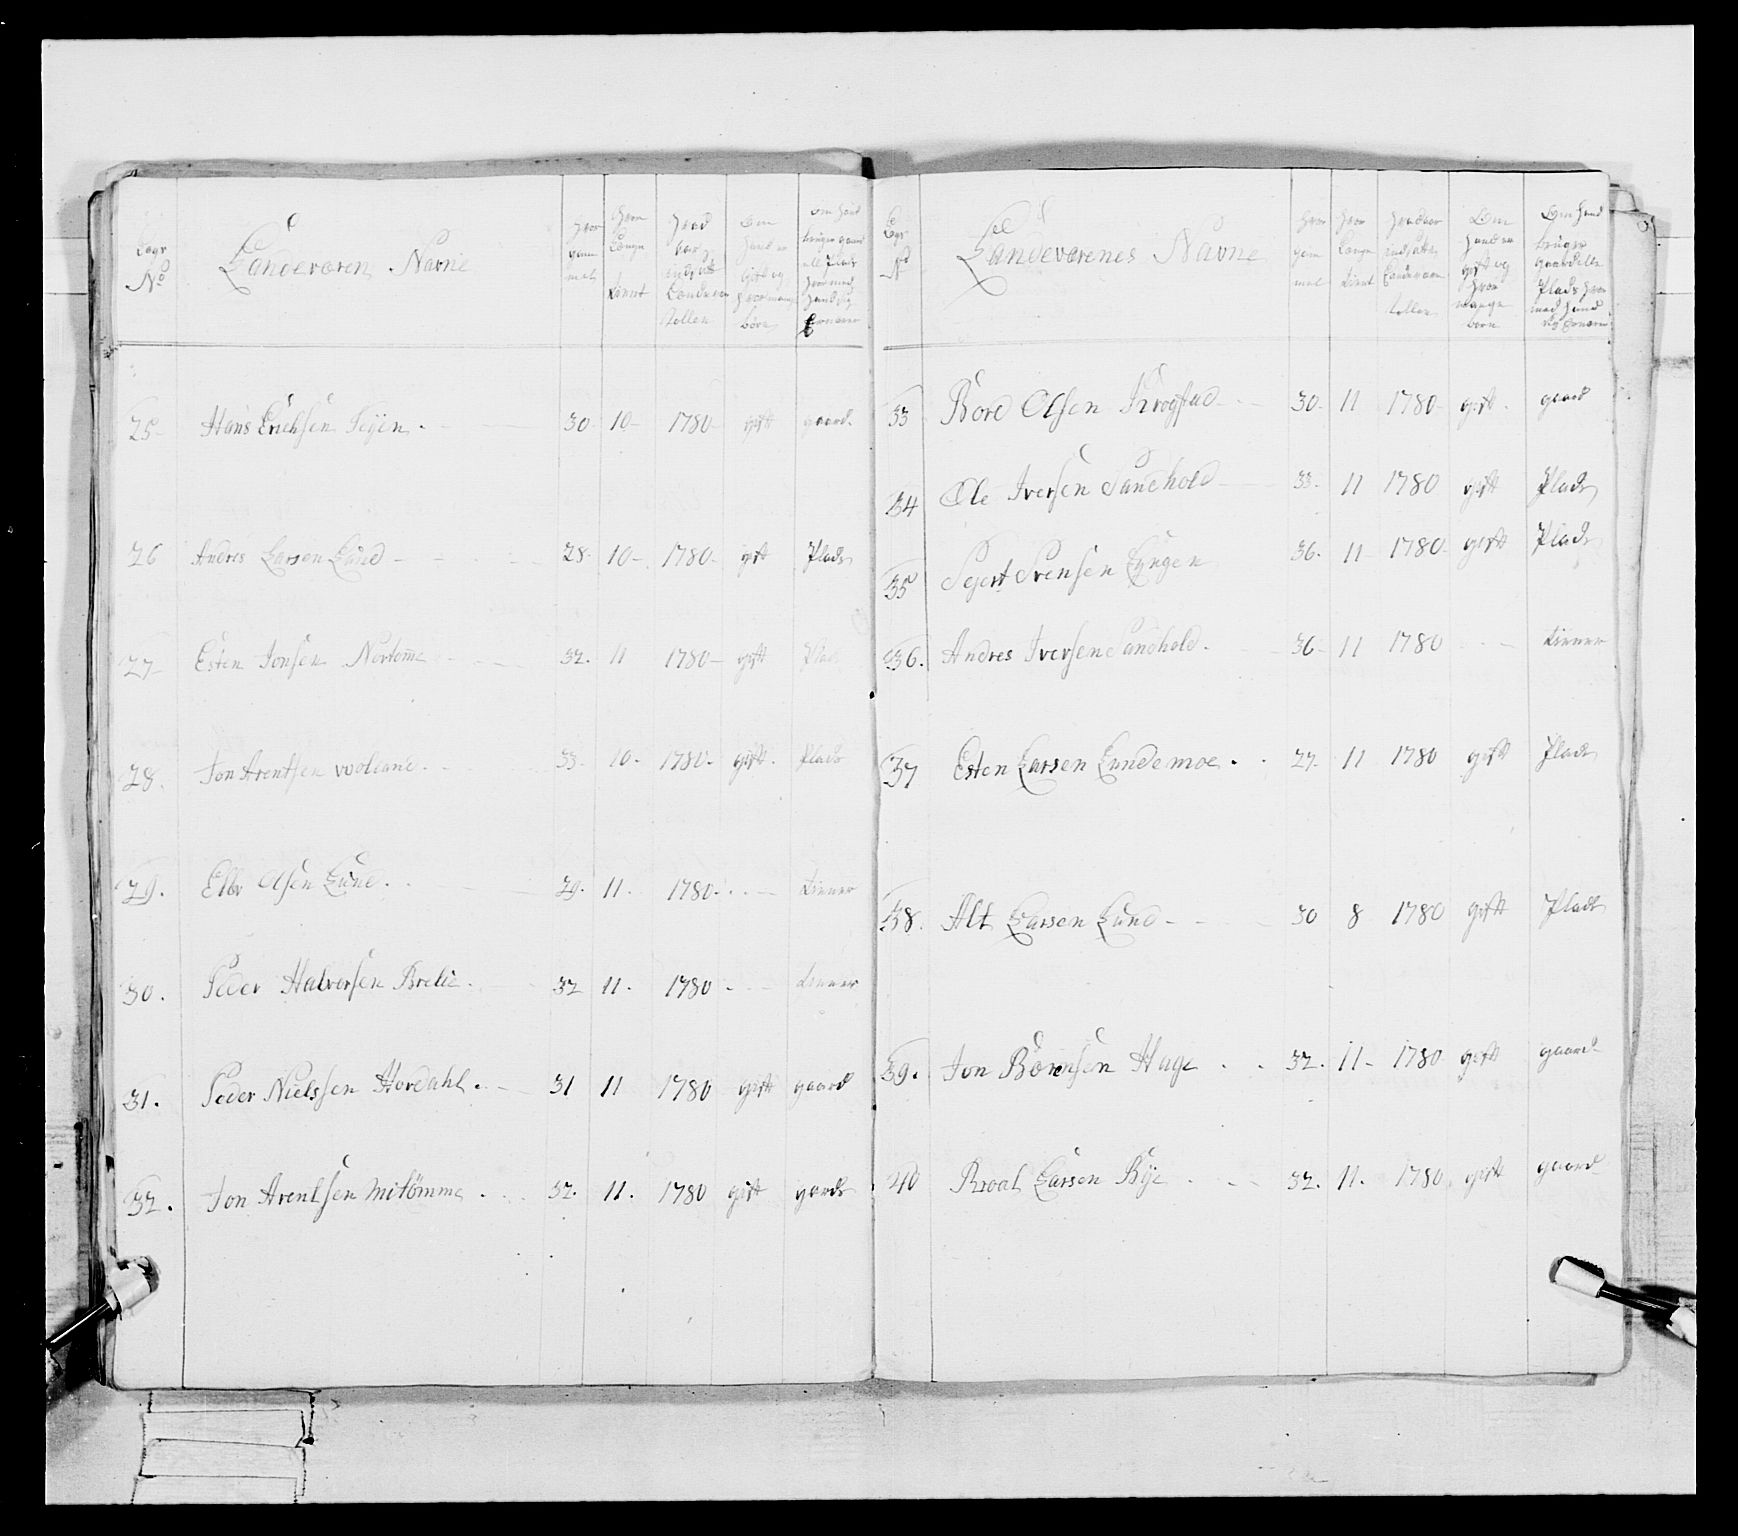 Legs No
Landeværen Navne
Hvor gammel
Hvor Længe tient
Hvad aar indsatt Landværn Rollen
Om Hand er gift og hvormange børn
om Hand bruger gaard ell Plads hvormed Hand sig Ernærer
25 Hans Erichsen Seyen 30 10 1780 gift gaard
26 Andres Larsen Lund 28 10 1780 gift Plads
27 Esten Jonsen Nortømme 32 11 1780 gift Plads
28 Jon Arentsen Woland 33 10 1780 gift Plads
29 Ellev Olsen Lund 29 11 1780 tiener
30 Peder Halvorsen Brelie 32 11 1780 tiener
31 Peder Nielssen Hordahl 31 11 1780 gift gaard
32 Jon Arentsen Mitømme 32 11 1780 gift gaard
Legs No
Landeværenes Navne
Hvor gammel
Hvor Længe tient
Hvad aar indsatt Landeværn Rollen
Om Hand er gift og hvor mange børn
Om Hand bruger gaard elle Plads hvor med Hand sig Ernærer
33 Bord Olsen Krogstad 30 11 1780 gift gaard
34 Ole Iversen Sandhold 33 11 1780 gift Plads
35 Sejert Svensen Lyngen 36 11 1780 gift Plads
36 Andres Iversen Sandhold 36 11 1780 tiener
37 Esten Larsen Lundemoe 27 11 1780 gift Plads
38 Alt Larsen Lund 30 8 1780 gift Plads
39 Jon Børensen Hage 32 11 1780 gift gaard
40 Roal Larsen Rye 32 11 1780 gift gaard